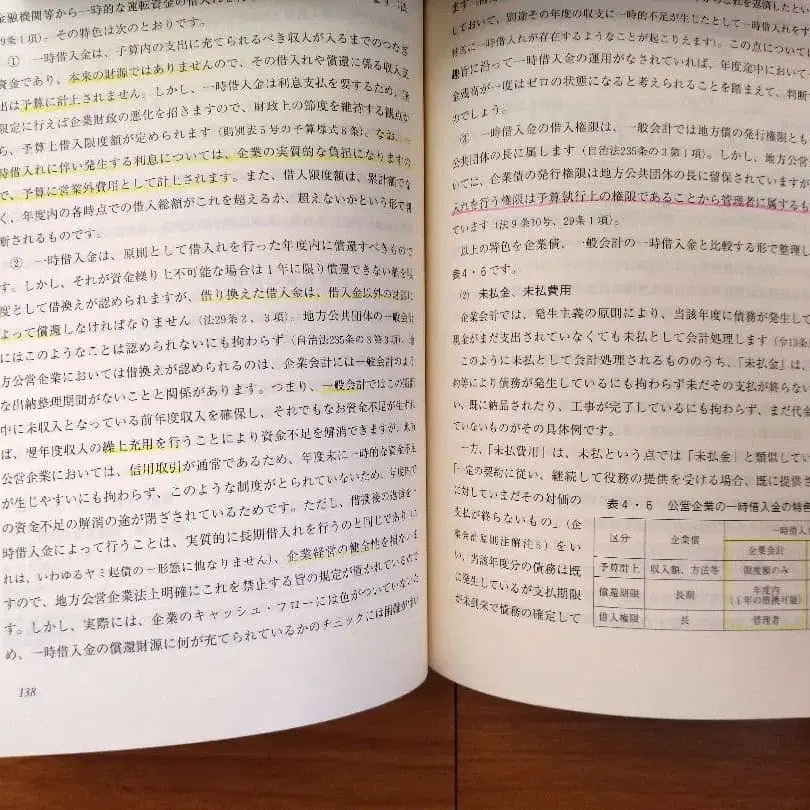 金融機関等から一時的な運転資金の借入
29条1項)。その特色は次のとおりです。
① 一時借入金は、予算内の支出に充てられるべき収入が入るまでのつなぎ
資金であり、本来の財源ではありませんので、その借入れや償還に係る収入支
出は予算に計上されません。しかし、一時借入金は利息支払を要するため、
限定に行えば企業財政の悪化を招きますので、財政上の節度を維持する観点か
ら、予算上借入限度額が定められます(則別表5号の予算様式6条)。なお、一
時借入れに伴い発生する利息については、企業の実質的な負担になりますの
で、予算に営業外費用として計上されます。また、借入限度額は、累計額でな
く、年度内の各時点での借入総額がこれを超えるか、超えないかという形で判
断されるものです。
② 一時借入金は、原則として借入れを行った年度内に償還すべきもので
す。しかし、それが資金繰り上不可能な場合は1年に限り償還できない額を限
度として借換えが認められますが、借り換えた借入金は、借入金以外の財源に
よって償還しなければなりません(法29条2、3項)。地方公共団体の一般会計
にはこのようなことは認められないにも拘わらず(自治法235条の3第3項)、地
方公営企業においては借換えが認められるのは、企業会計には一般会計のよう
な出納整理期間がないことと関係があります。つまり、一般会計ではこの期間
中に未収入となっている前年度収入を確保し、それでもなお資金不足が生ずれ
ば、翌年度収入の繰上充用を行うことにより資金不足を解消できますが、地方
公営企業においては、信用取引が通常であるため、年度末に一時的な資金不足
が生じやすいにも拘わらず、このような制度がとられていないため、年度内で
の資金不足の解消の途が閉ざされているためです。ただし、借換後の返済を一
時借入金によって行うことは、実質的に長期借入れを行うのと同じであり(こ
れは、いわゆるヤミ起債の一形態に他なりません)、企業経営の健全性を損ないま
すので、地方公営企業法上明確にこれを禁止する旨の規定が置かれているので
す。しかし、実際には、企業のキャッシュ・フローには色がついていないた
め、一時借入金の償還財源に何が充てられているかのチェックには困難が
138
これを返済したとい
しておいて、別途その年度の収支に一時的不足が生じたとして一時借入れをす
時借入れが存在するようなことが起こりえます)。この点については
趣旨に沿って一時借入金の運用がなされていれば、年度途中において
金残高が一度はゼロの状態になると考えられることを踏まえて、判断
のでしょう。
③ 一時借入金の借入権限は、一般会計では地方債の発行権限ととも
公共団体の長に属します(自治法235条の3第1項)。しかし、地方公
いては、企業債の発行権限は地方公共団体の長に留保されていますが
入れを行う権限は予算執行上の権限であることから管理者に属するも
ています(法9条10号、29条1項)。
以上の特色を企業債、一般会計の一時借入金と比較する形で整理し
表4・6です。
(2) 未払金、未払費用
企業会計では、発生主義の原則により、当該年度に債務が発生して
現金がまだ支出されていなくても未払として会計処理します(令13条
このように未払として会計処理されるもののうち、「未払金」は、
約等により債務が発生しているにも拘わらず未だその支払が終らない
い、既に納品されたり、工事が完了しているにも拘わらず、まだ代金
ていないものがその具体例です。
一方、「未払費用」は、未払という点では「未払金」と類似してい
「一定の契約に従い、継続して役務の提供を受ける場合、既に提供さ
に対していまだその対価の
支払が終らないもの」(企
業会計原則注解注5)をい
い、当該年度分の債務は既
に発生しているが支払期限
が未到来で債務の確定して
表4・6 公営企業の一時借入金の特色
区分 企業債 一時借入
企業会計
予算計上 収入額、方法等 限度額のみ
償還期限 長期 年度内
(1年の借換可能)
借入権限 長 管理者